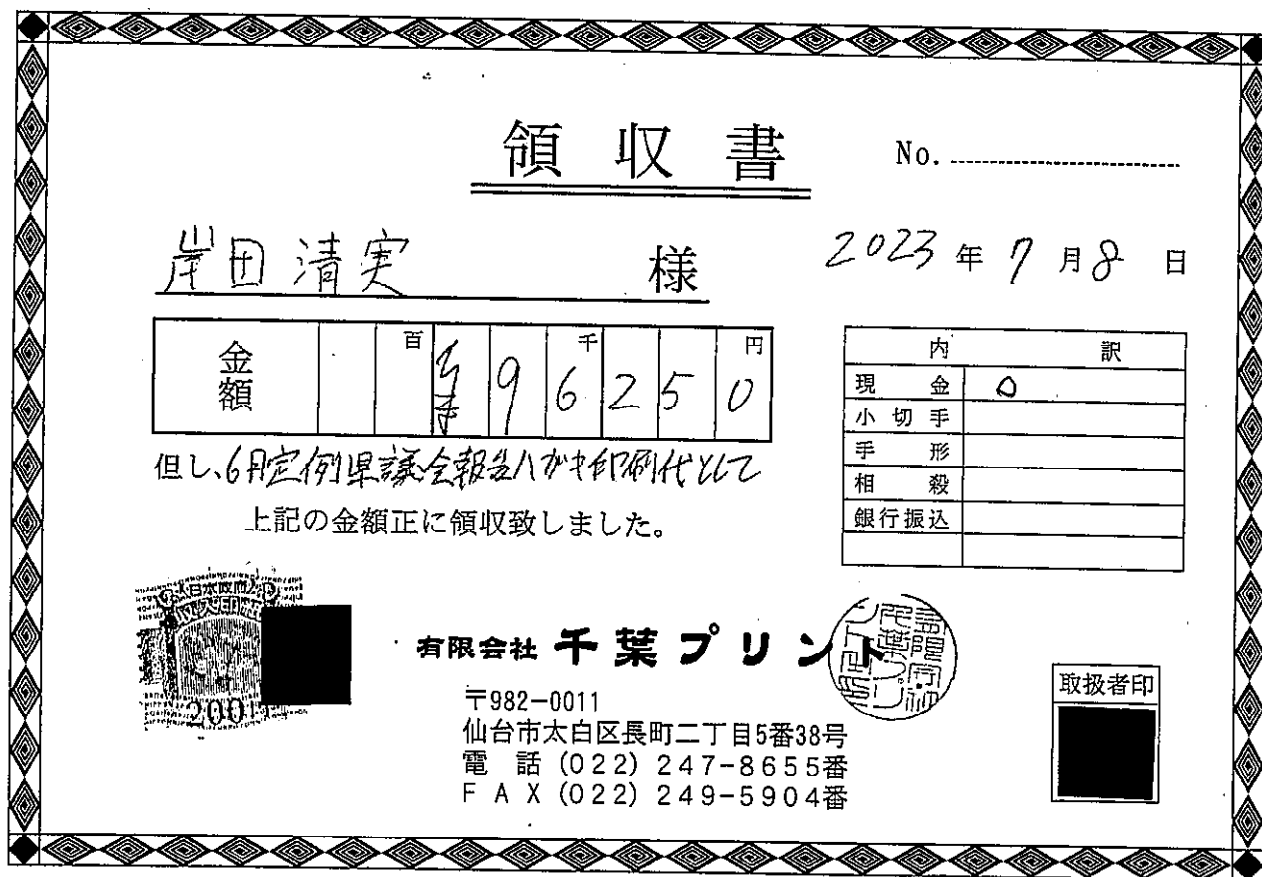 領収書
No.
岸田清実 様
2023年7月8日
金額 百 千 円
96250
但し、6月定例県議会報告ハガキ印刷代として
上記の金額正に領収致しました。
内訳
現金 ○
小切手
手形
相殺
銀行振込
日本政府
収入印紙
200
有限会社 千葉プリント
〒982-0011
仙台市太白区長町二丁目5番38号
電話(022)247-8655番
FAX(022)249-5904番
取扱者印